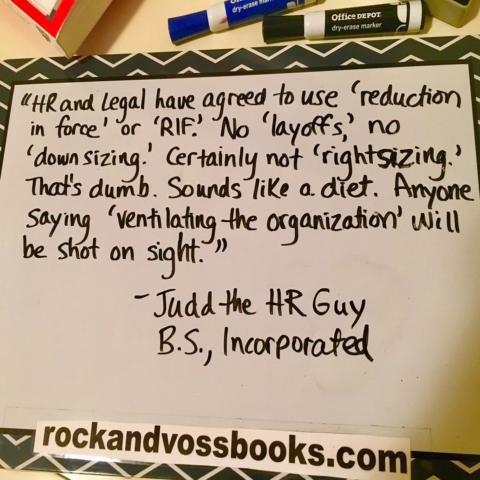 Office DEPOT
dry-erase marker
Office DEPOT.
dry-erase marker
"HR and Legal have agreed to use 'reduction
in force' or 'RIF.' No 'layoffs,' no
'downsizing.' Certainly not 'rightsizing.'
That's dumb. Sounds like a diet. Anyone
saying 'ventilating the organization' will
be shot on sight."
- Judd the HR Guy
B.S., Incorporated
rockandvossbooks.com